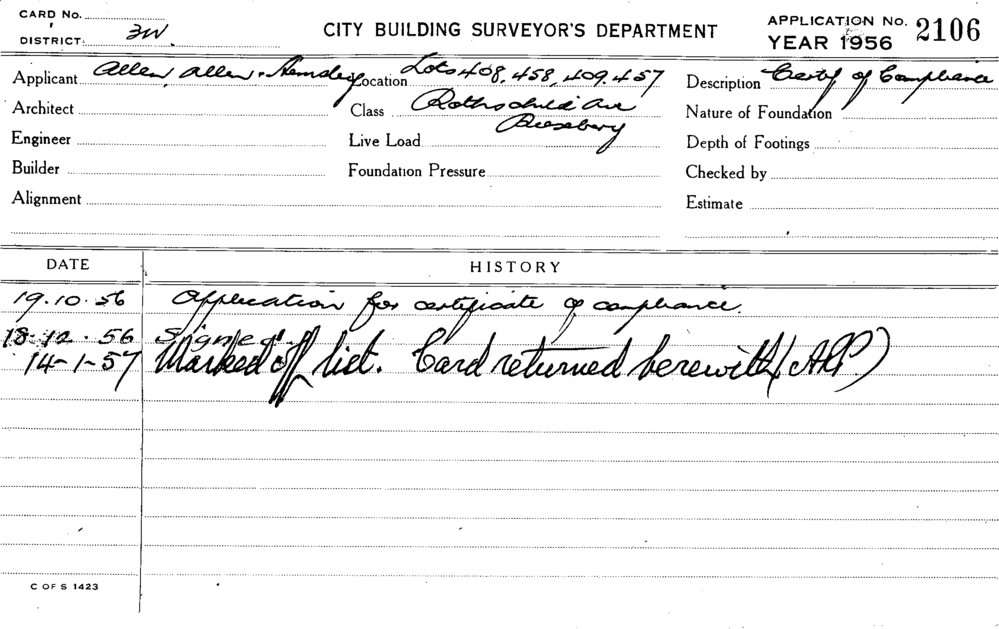 CARD No.
DISTRICT: 3W.
CITY BUILDING SURVEYOR'S DEPARTMENT
APPLICATION No. 2106
YEAR 1956
Applicant Allen, Allen & Hemsley Location Lots 408, 458, 409, 457 Description Certif of Compliance
Architect Class Rothschild Ave Nature of Foundation
Rosebery
Engineer Live Load Depth of Footings
Builder Foundation Pressure Checked by
Alignment Estimate
DATE HISTORY
19.10.56 Application for certificate of compliance.
18.12.56 Signed.
14-1-57 Marked off list. Card returned herewith (AHP.)
C OF S 1423